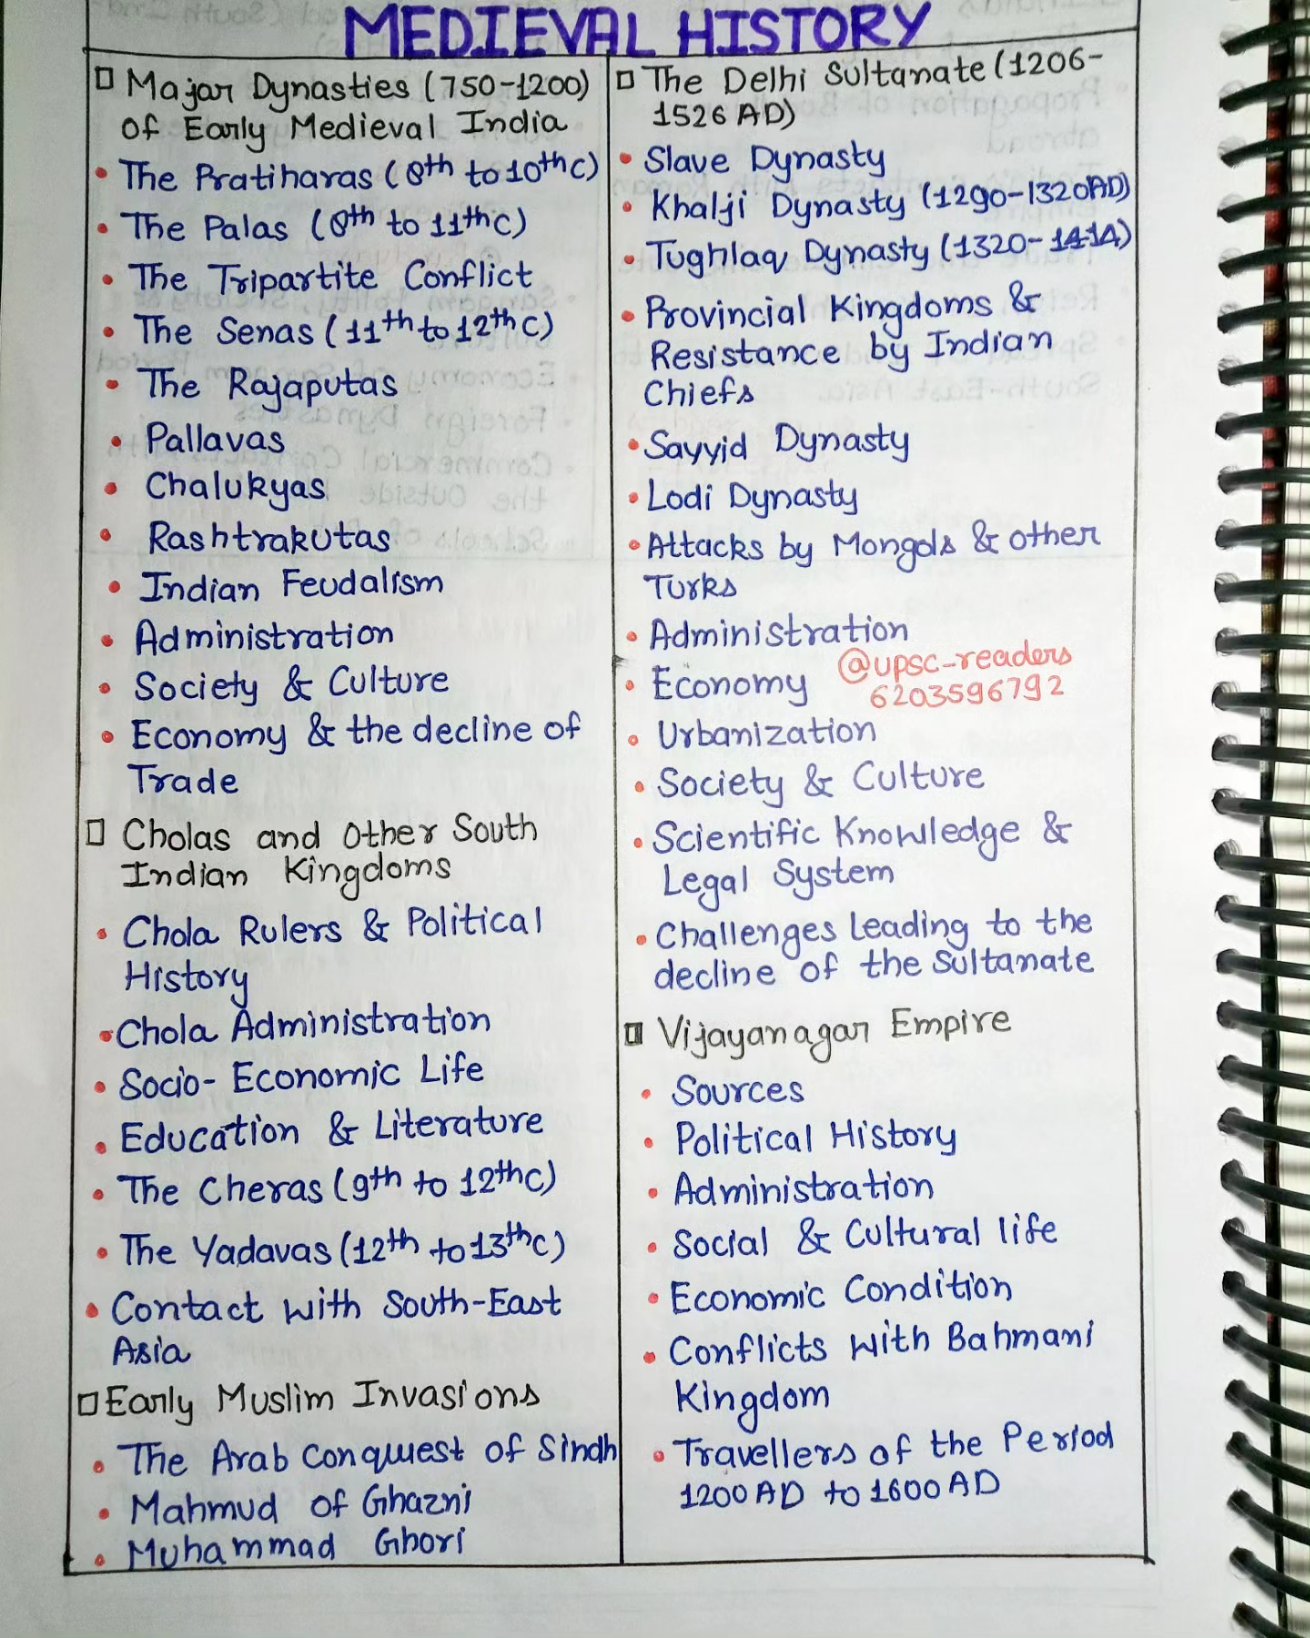 MEDIEVAL HISTORY
Major Dynasties (750-1200)
of Early Medieval India
• The Pratiharas (8th to 10th C)
• The Palas (8th to 11th C)
• The Tripartite Conflict
• The Senas (11th to 12th C)
• The Rajaputas
• Pallavas
• Chalukyas
• Rashtrakutas
• Indian Feudalism
• Administration
• Society & Culture
• Economy & the decline of
Trade
Cholas and Other South
Indian Kingdoms
• Chola Rulers & Political
History
• Chola Administration
• Socio-Economic Life
• Education & Literature
• The Cheras (9th to 12th C)
• The Yadavas (12th to 13th C)
• Contact with South-East
Asia
Early Muslim Invasions
• The Arab Conquest of Sindh
• Mahmud of Ghazni
• Muhammad Ghori
The Delhi Sultanate (1206-
1526 AD)
• Slave Dynasty
• Khalji Dynasty (1290-1320AD)
• Tughlaq Dynasty (1320-1414)
• Provincial Kingdoms &
Resistance by Indian
Chiefs
• Sayyid Dynasty
• Lodi Dynasty
• Attacks by Mongols & other
Turks
• Administration
• Economy
@upsc-readers
6203596792
• Urbanization
• Society & Culture
• Scientific Knowledge &
Legal System
• Challenges leading to the
decline of the Sultanate
Vijayanagar Empire
• Sources
• Political History
• Administration
• Social & Cultural life
• Economic Condition
• Conflicts with Bahmani
Kingdom
• Travellers of the Period
1200 AD to 1600 AD